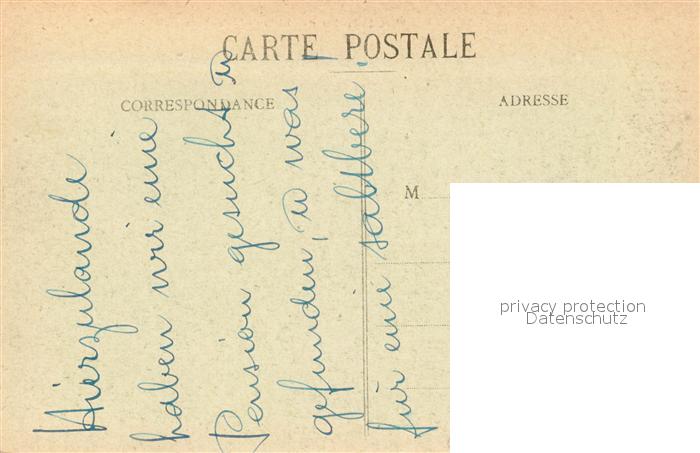 CARTE POSTALE
CORRESPONDANCE
ADRESSE
M
Hierzulande
haben wir eine
Pension gesucht u
gefunden, u was
für eine saubere!
privacy protection
Datenschutz